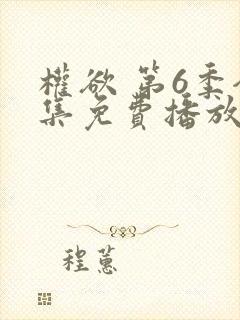 權欲 第6季
集免費播放
程蕙